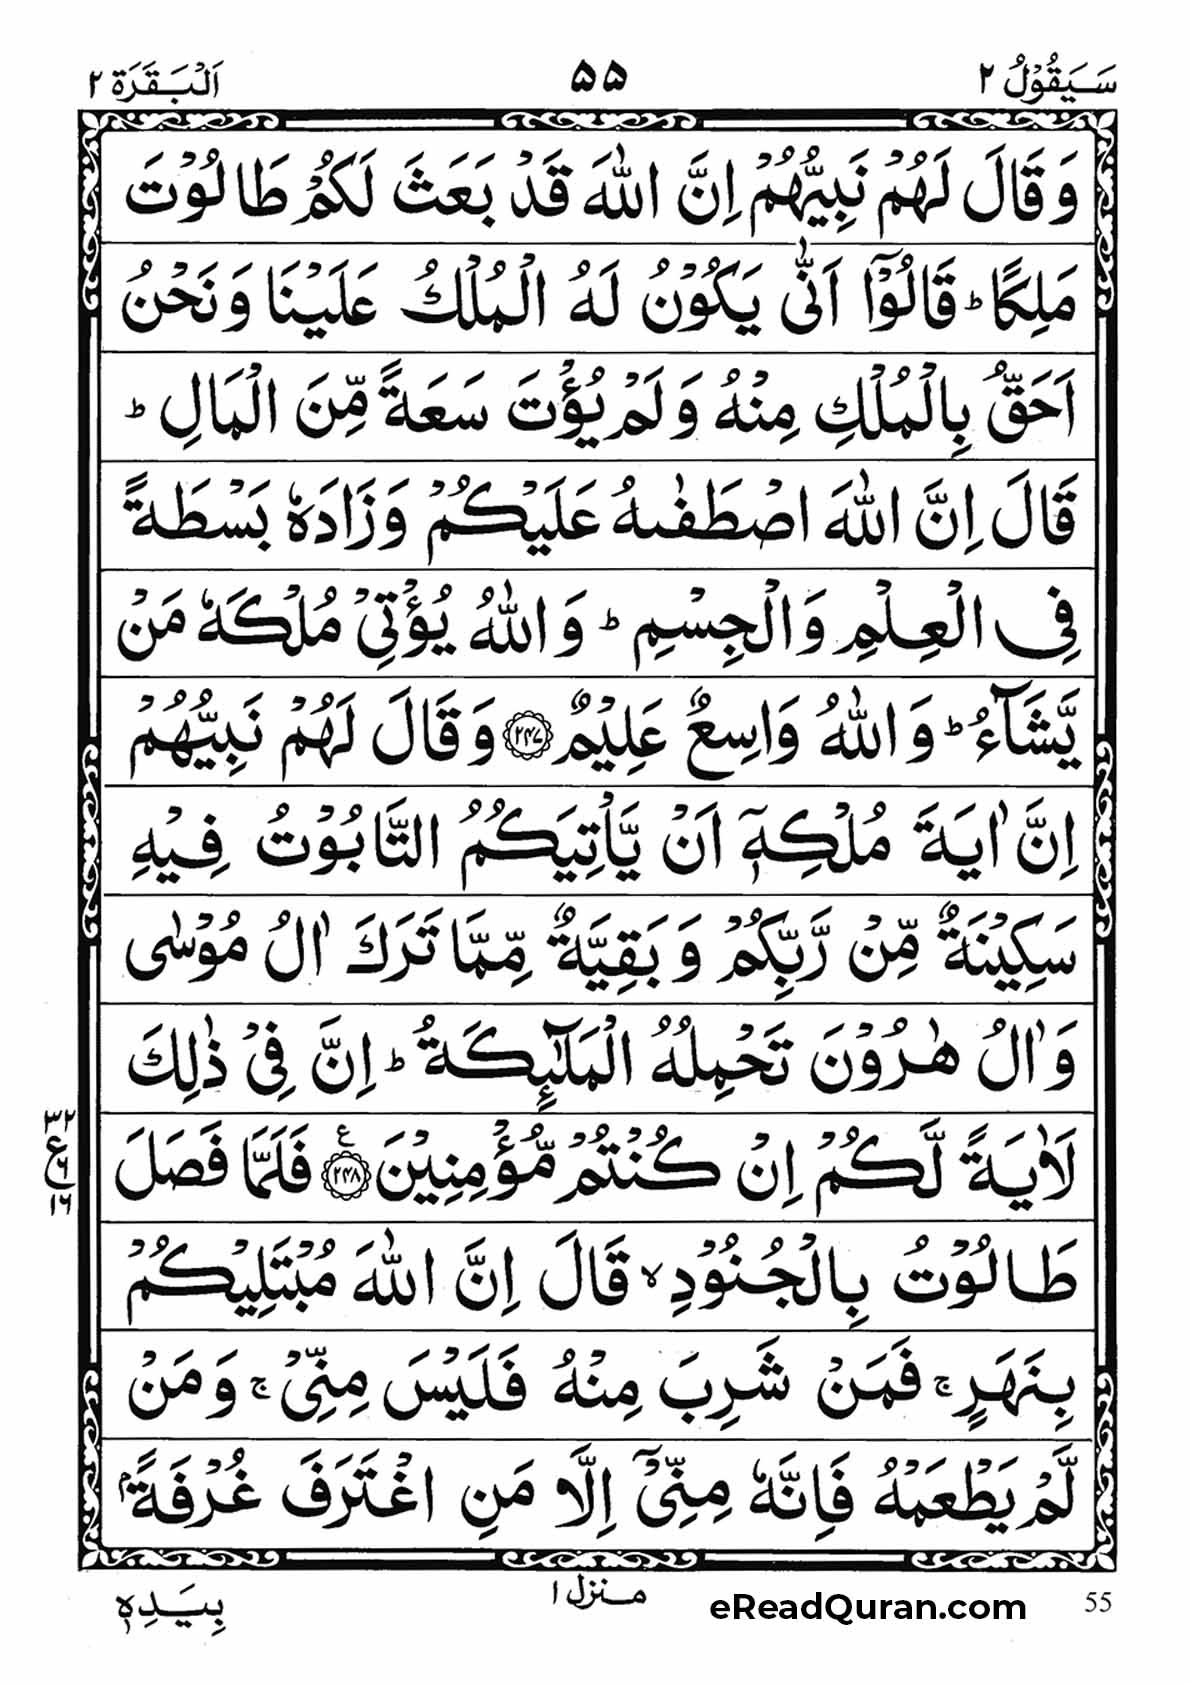 سَيَقُوْلُ ٢ ۵۵ اَلْبَقَرَة ٢
وَقَالَ لَهُمْ نَبِيُّهُمْ اِنَّ اللّٰهَ قَدْ بَعَثَ لَكُمْ طَالُوْتَ
مَلِكًا ؕ قَالُوْۤا اَنّٰى يَكُوْنُ لَهُ الْمُلْكُ عَلَيْنَا وَنَحْنُ
اَحَقُّ بِالْمُلْكِ مِنْهُ وَلَمْ يُؤْتَ سَعَةً مِّنَ الْمَالِ ؕ
قَالَ اِنَّ اللّٰهَ اصْطَفٰىهُ عَلَيْكُمْ وَزَادَهٗ بَسْطَةً
فِى الْعِلْمِ وَالْجِسْمِ ؕ وَاللّٰهُ يُؤْتِىْ مُلْكَهٗ مَنْ
يَّشَآءُ ؕ وَاللّٰهُ وَاسِعٌ عَلِيْمٌ ﴿۲۴۷﴾ وَقَالَ لَهُمْ نَبِيُّهُمْ
اِنَّ اٰيَةَ مُلْكِهٖۤ اَنْ يَّاْتِيَكُمُ التَّابُوْتُ فِيْهِ
سَكِيْنَةٌ مِّنْ رَّبِّكُمْ وَبَقِيَّةٌ مِّمَّا تَرَكَ اٰلُ مُوْسٰى
وَاٰلُ هٰرُوْنَ تَحْمِلُهُ الْمَلٰٓئِكَةُ ؕ اِنَّ فِىْ ذٰلِكَ
لَاٰيَةً لَّكُمْ اِنْ كُنْتُمْ مُّؤْمِنِيْنَ ﴿۲۴۸﴾ ع فَلَمَّا فَصَلَ
٣٢
ع ٦
١٦
طَالُوْتُ بِالْجُنُوْدِ ۙ قَالَ اِنَّ اللّٰهَ مُبْتَلِيْكُمْ
بِنَهَرٍ ۚ فَمَنْ شَرِبَ مِنْهُ فَلَيْسَ مِنِّىْ ۚ وَمَنْ
لَّمْ يَطْعَمْهُ فَاِنَّهٗ مِنِّىْۤ اِلَّا مَنِ اغْتَرَفَ غُرْفَةًۢ
بِيَدِهٖ منزل ١ eReadQuran.com 55